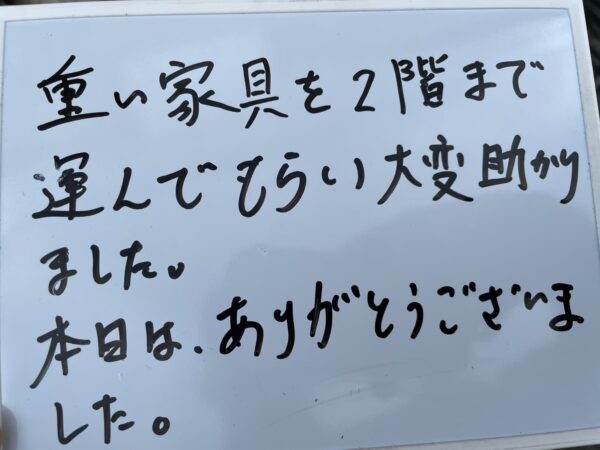 重い家具を2階まで
運んでもらい大変助かり
ました。
本日は、ありがとうございま
した。